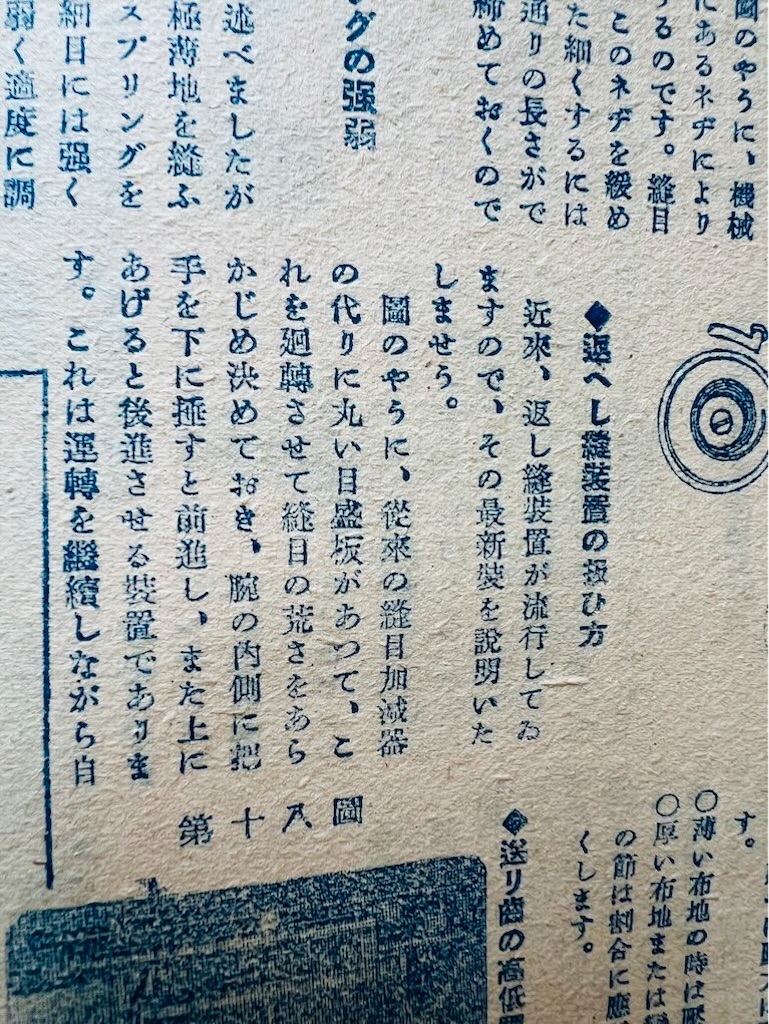 圖のやうに、機械
にあるネヂにより
するのです。縫目
このネヂを緩め
た細くするには
通りの長さがで
締めておくので
グの强弱
述べましたが
極薄地を縫ふ
スプリングを
細目には强く
弱く適度に調
◆返へし縫裝置の扱ひ方
近來、返し縫裝置が流行してゐ
ますので、その最新裝を說明いた
しませう。
圖のやうに、從來の縫目加減器
の代りに丸い目盛板があつて、こ
れを廻轉させて縫目の荒さをあら
かじめ決めておき、腕の內側に把
手を下に押すと前進し、また上に
あげると後進させる裝置でありま
す。これは運轉を繼續しながら自
す。
○薄い布地の時は壓
○厚い布地または
の節は割合に應
くします。
◆送り齒の高低
第十八圖